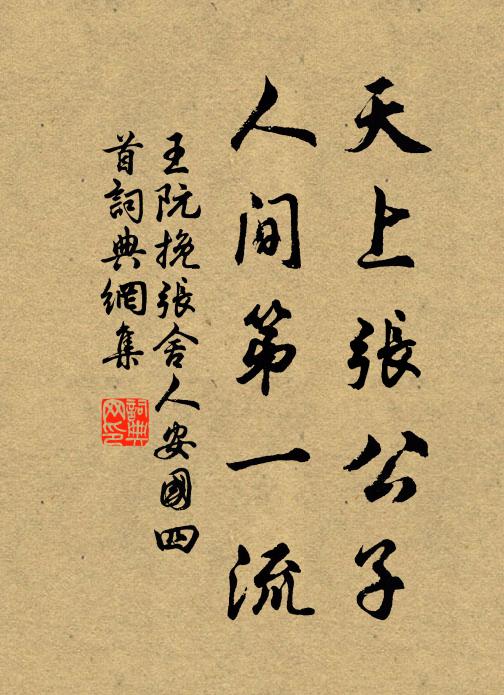 天上張公子
人間第一流
王阮挽張舍人安國四
首詞典網集
詞典
网印